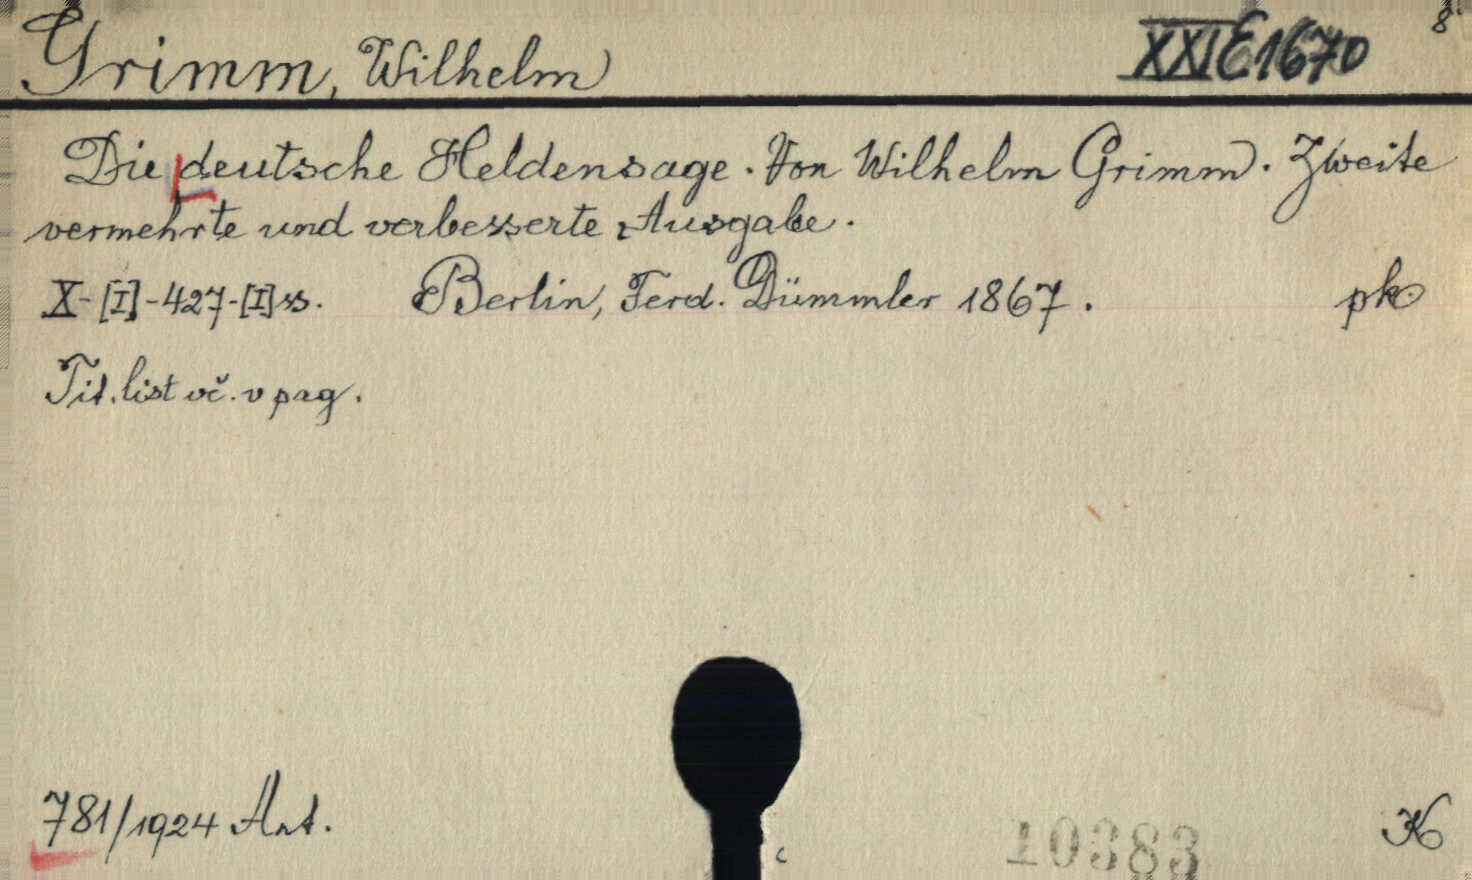 Grimm, Wilhelm XXI E 1670 8°
Die deutsche Heldensage. Von Wilhelm Grimm. Zweite
vermehrte und verbesserte Ausgabe.
X-[I]-427-[I] ss. Berlin, Ferd. Dümmler 1867. pk
Tit. list vč. v pag.
781/1924 Ant. 10383 K